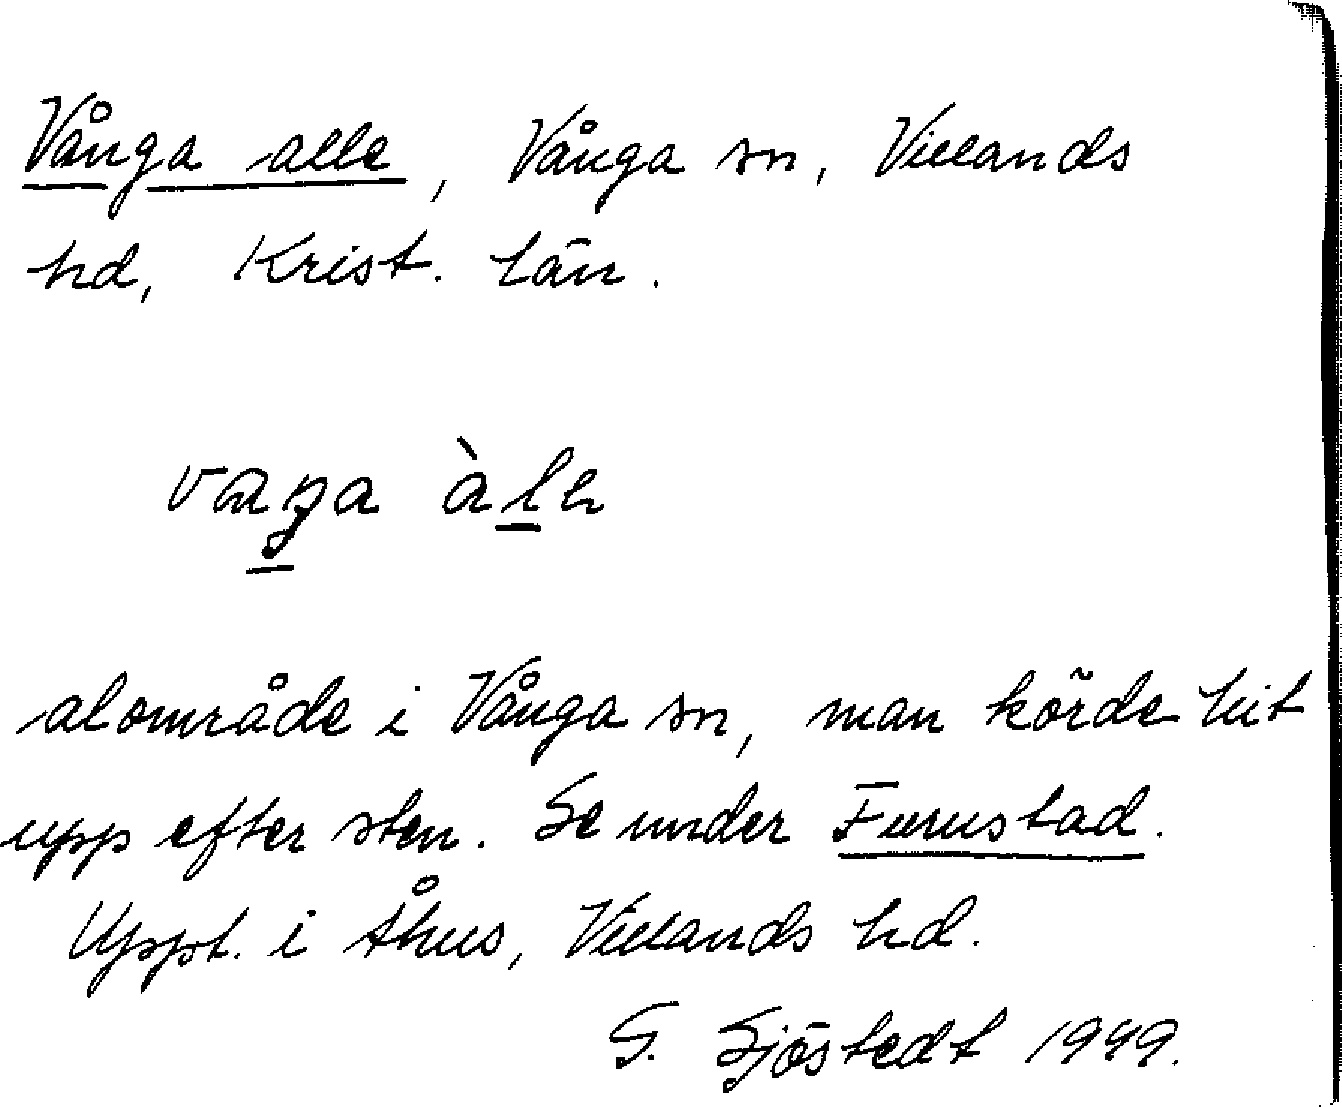 Vånga alle, Vånga sn, Villands
hd, Krist. län.
alområde i Vånga sn, man körde hit
upp efter sten. Se under Furustad.
Uppt. i Åhus, Villands hd.
G. Sjöstedt 1949.